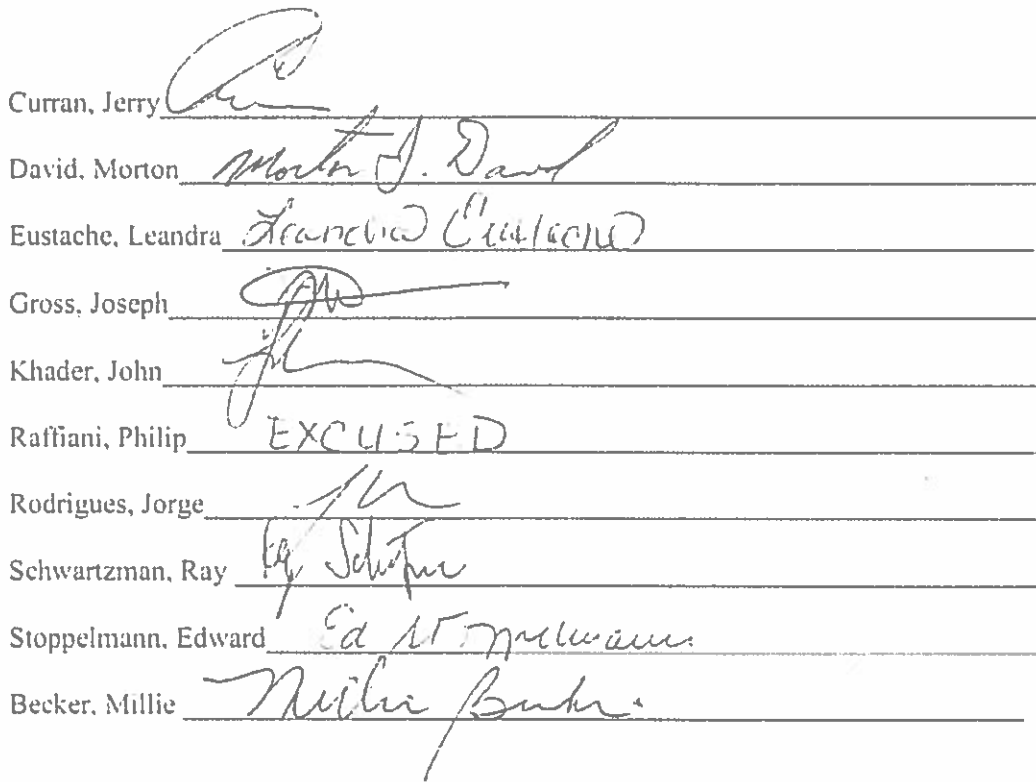 Curran, Jerry
David, Morton Morton J. David
Eustache, Leandra Leandra Eustache
Gross, Joseph
Khader, John
Raffiani, Philip EXCUSED
Rodrigues, Jorge
Schwartzman, Ray
Stoppelmann, Edward Ed Stoppelmann
Becker, Millie Millie Becker